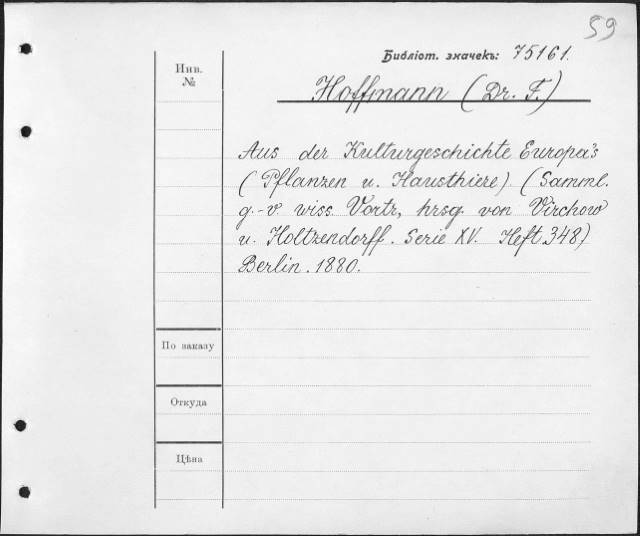 59
Библіот. значекъ: 75161.
Инв.
№
Hoffmann (Dr. F.)
Aus der Kulturgeschichte Europa's
(Pflanzen u. Hausthiere) (Samml.
g.-v. wiss. Vortr, hrsg. von Virchow
u. Holtzendorff. Serie XV. Heft 348)
Berlin. 1880.
По заказу
Откуда
Цѣна